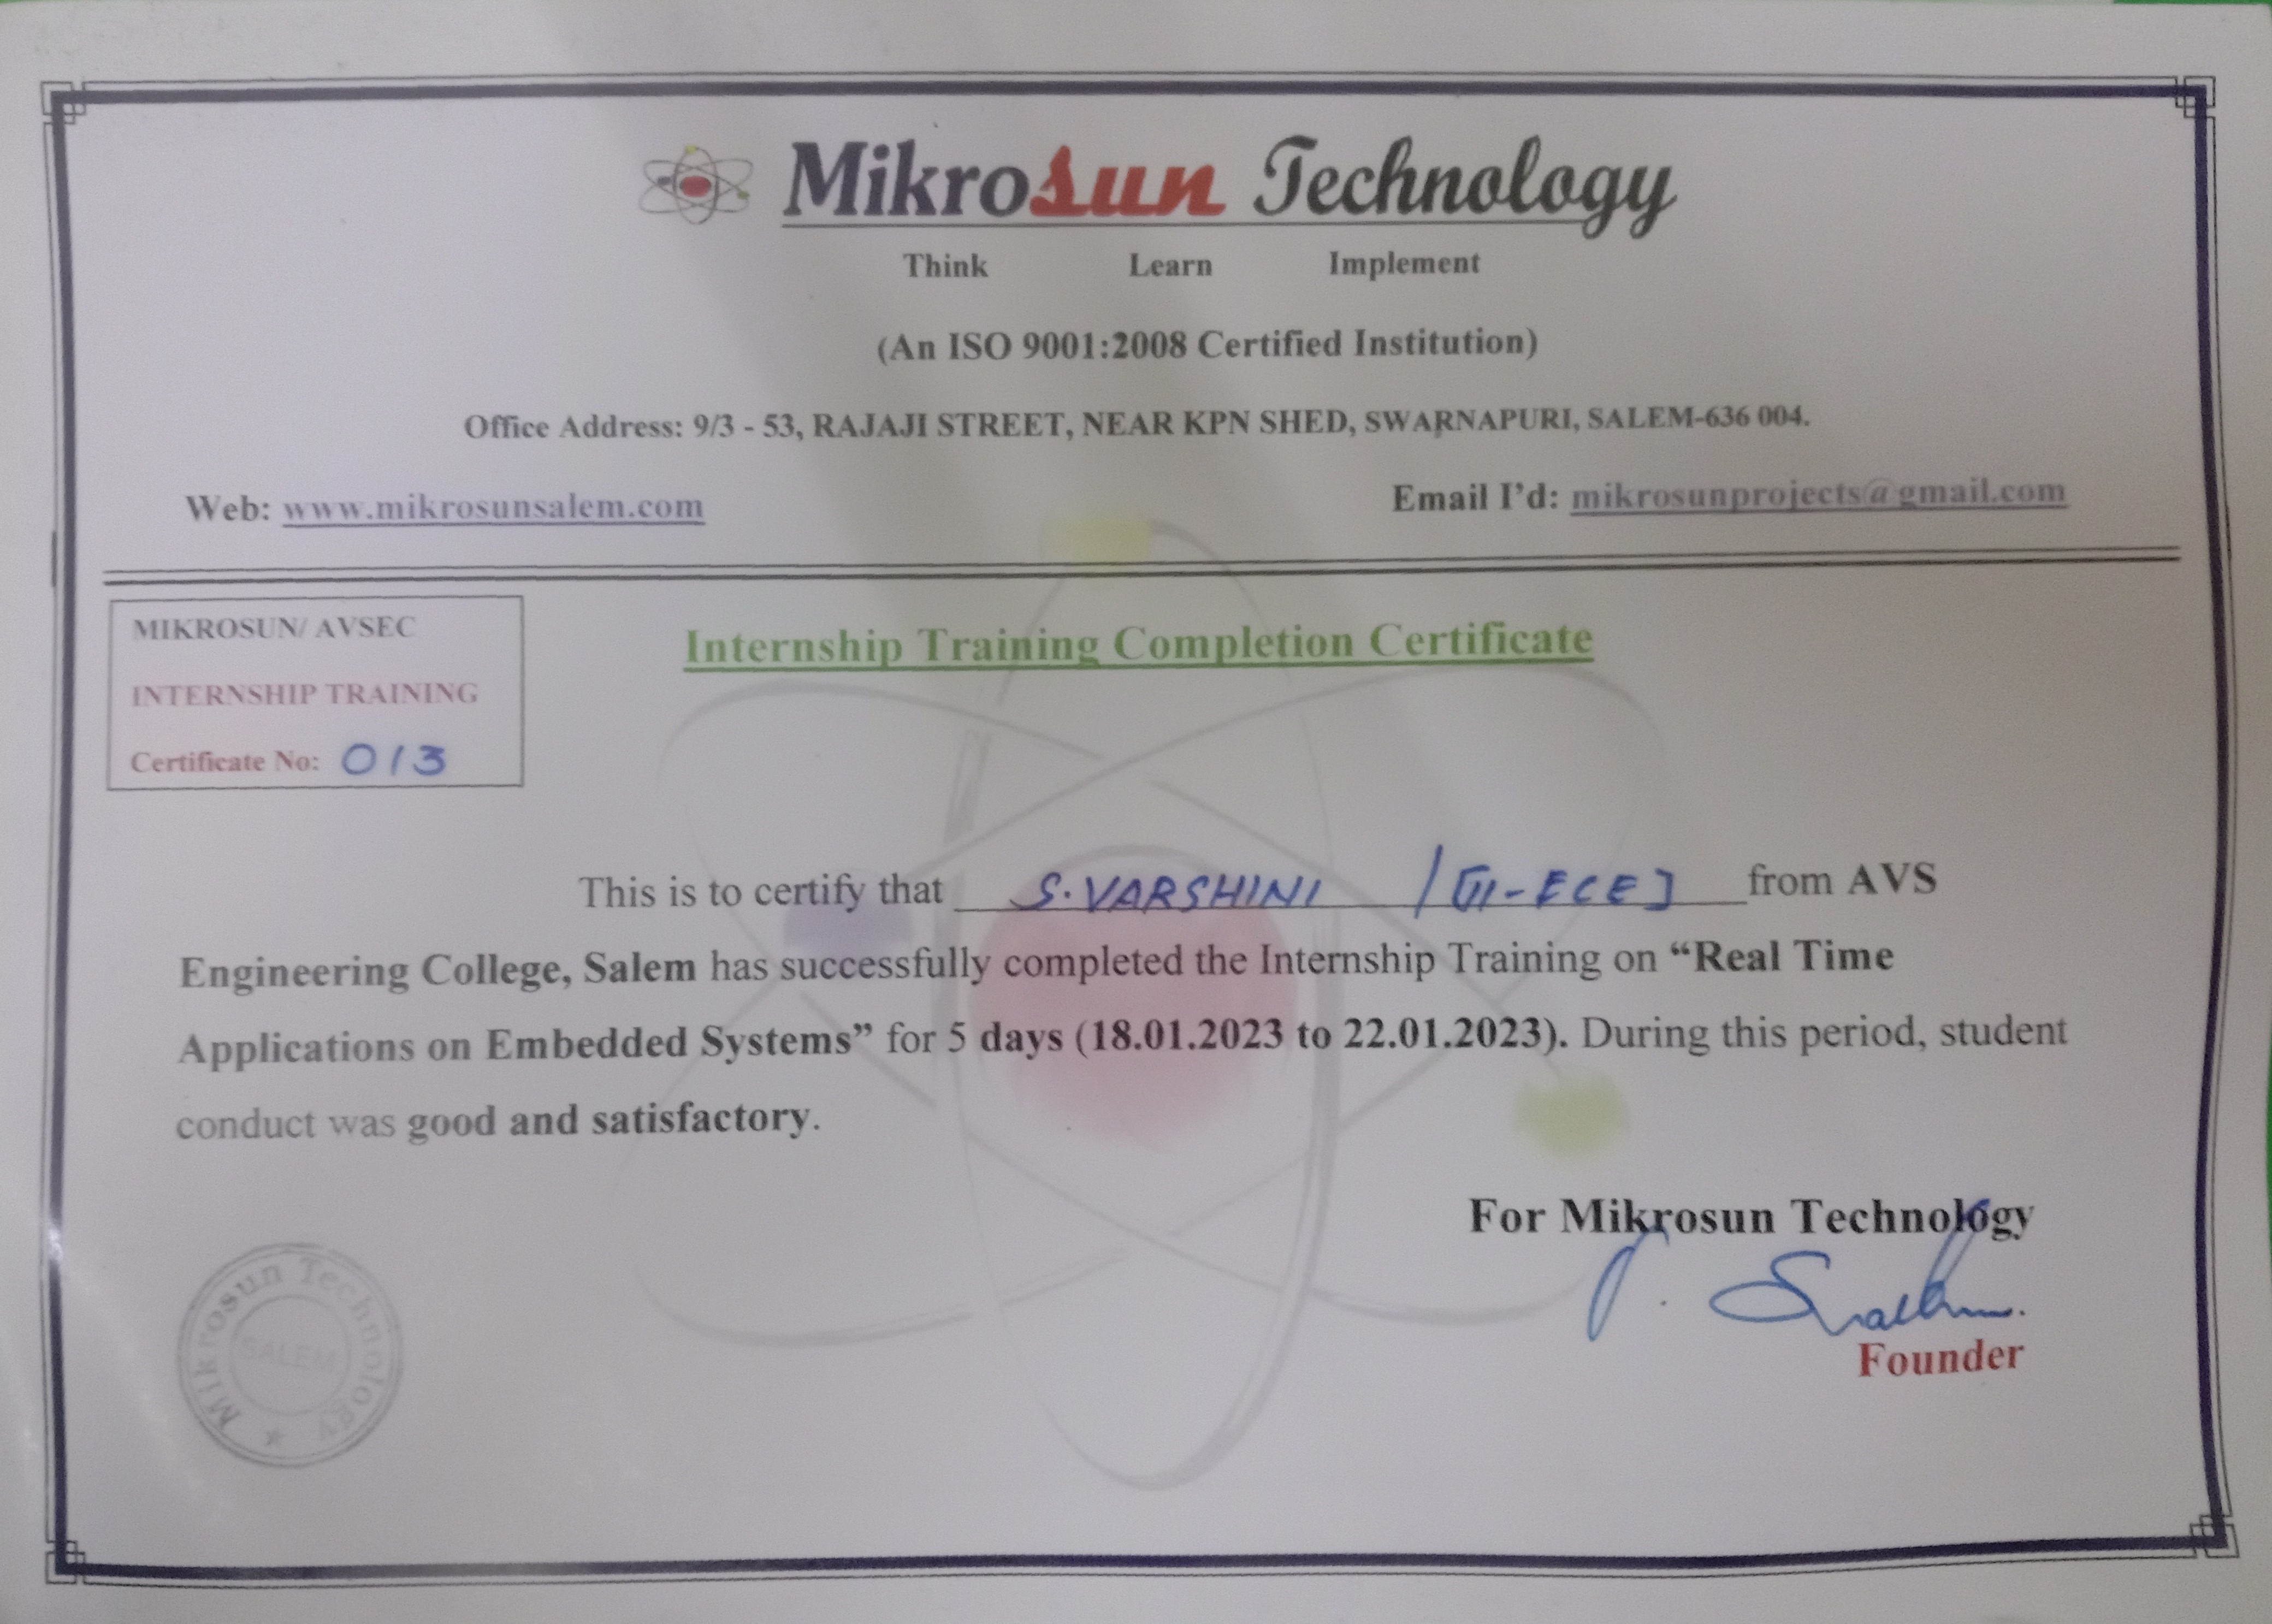 Mikrosun Technology
Think Learn Implement
(An ISO 9001:2008 Certified Institution)
Office Address: 9/3 - 53, RAJAJI STREET, NEAR KPN SHED, SWARNAPURI, SALEM-636 004.
Web: www.mikrosunsalem.com Email I’d: mikrosunprojects@gmail.com
MIKROSUN/ AVSEC
INTERNSHIP TRAINING
Certificate No: 013
Internship Training Completion Certificate
This is to certify that S.VARSHINI /[II-ECE] from AVS
Engineering College, Salem has successfully completed the Internship Training on “Real Time
Applications on Embedded Systems” for 5 days (18.01.2023 to 22.01.2023). During this period, student
conduct was good and satisfactory.
For Mikrosun Technology
Founder
Mikrosun Technology
SALEM